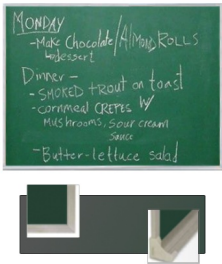 MONDAY
-Make Chocolate/Almond ROLLS
dessert
Dinner -
- SMOKED trout on toast
- cornmeal CREPES W/
Mushrooms, sour cream
sauce
- Butter-lettuce salad